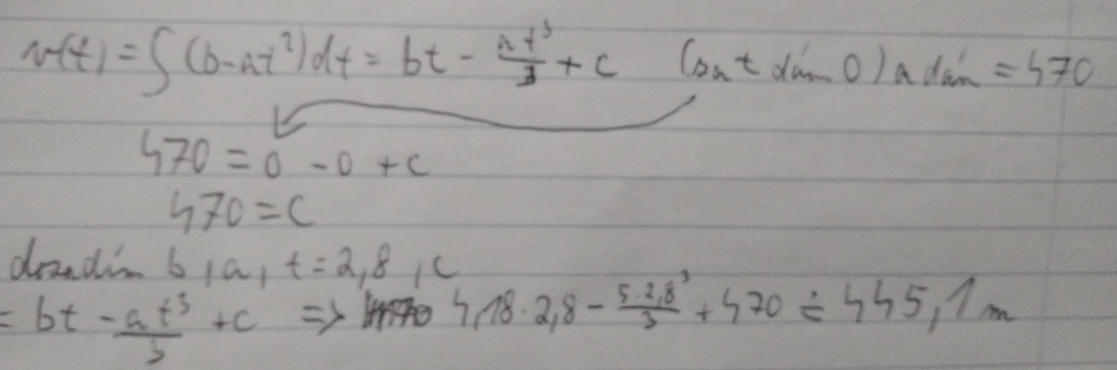 v(t) = ∫(b-at²)dt = bt - at³/3 + c (za t dám 0) a dám = 470
470 = 0 - 0 + c
470 = c
dosadím b, a, t = 2,8, c
= bt - at³/3 + c => 4,18·2,8 - 5·2,8³/3 + 470 ≐ 445,1 m